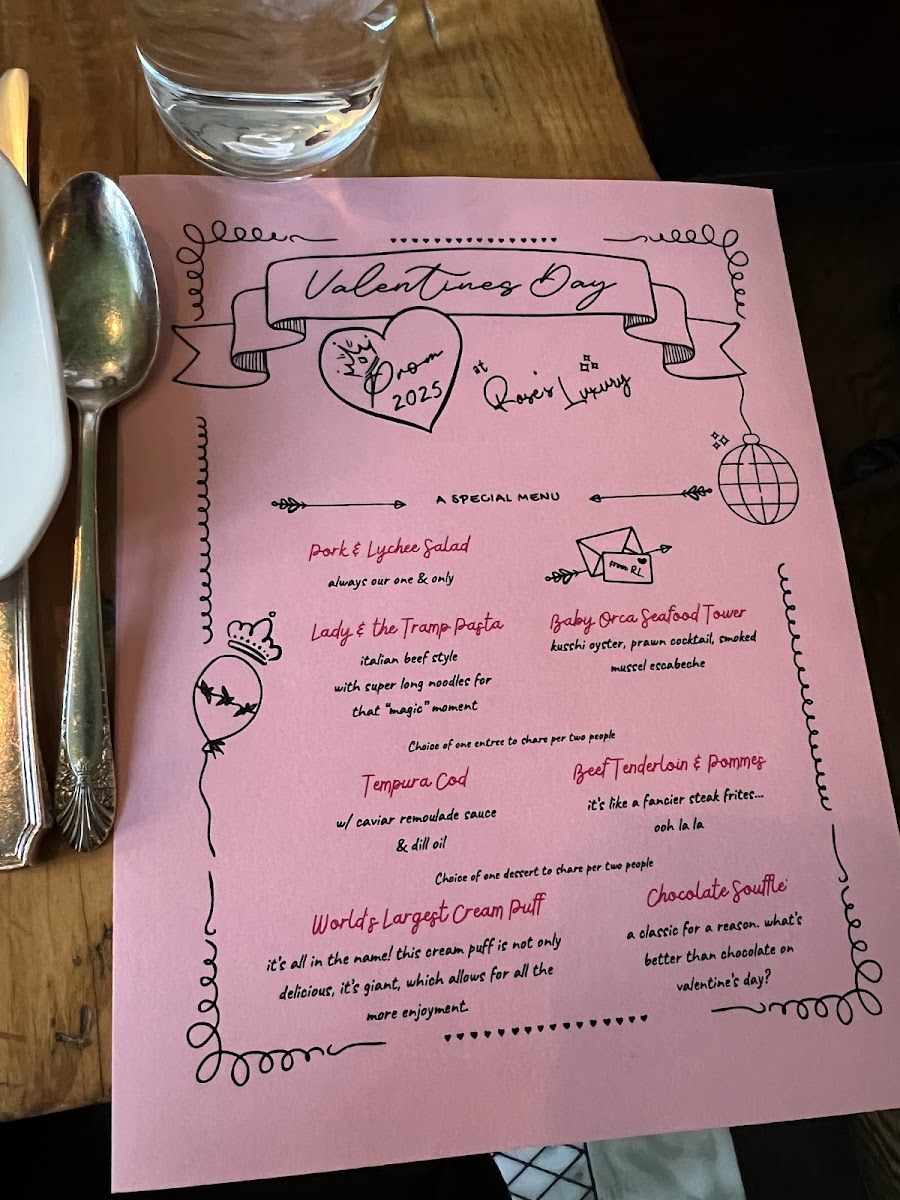 Valentines Day
Prom
2025
at
Rose's Luxury
A SPECIAL MENU
Pork & Lychee Salad
always our one & only
from RL
Lady & the Tramp Pasta
italian beef style
with super long noodles for
that "magic" moment
Baby Orca Seafood Tower
kusshi oyster, prawn cocktail, smoked
mussel escabeche
Choice of one entree to share per two people
Tempura Cod
w/ caviar remoulade sauce
& dill oil
Beef Tenderloin & Pommes
it's like a fancier steak frites...
ooh la la
Choice of one dessert to share per two people
World's Largest Cream Puff
it's all in the name! this cream puff is not only
delicious, it's giant, which allows for all the
more enjoyment.
Chocolate Souffle'
a classic for a reason. what's
better than chocolate on
valentine's day?